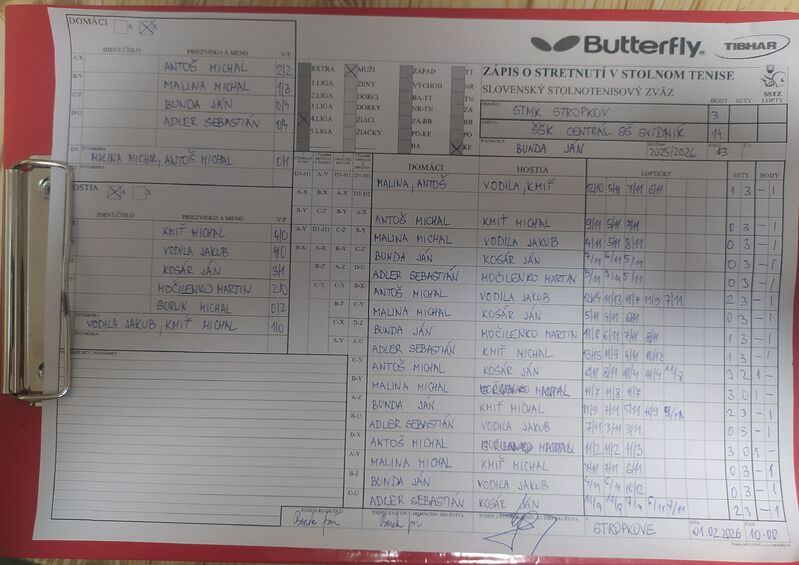 DOMÁCI A X
IDENT. ČÍSLO PRIEZVISKO A MENO V/P
A-X ANTOŠ MICHAL 2/2
B-Y MALINA MICHAL 1/3
C-Z BUNDA JÁN 0/4
D-U ADLER SEBASTIÁN 0/4
D1 ŠTVORHRA MALINA MICHAL, ANTOŠ MICHAL 0/1
HOSTIA A X
IDENT. ČÍSLO PRIEZVISKO A MENO V/P
KMIŤ MICHAL 4/0
VODILA JAKUB 4/0
KOSÁR JÁN 3/1
MOČILENKO MARTIN 2/0
BORLIN MICHAL 0/2
ŠTVORHRA
VODILA JAKUB, KMIŤ MICHAL 1/0
ŠTVORHRA
Butterfly TIBHAR
EXTRA MUŽI ZÁPAD TT
1.LIGA ŽENY VÝCHOD NR
2.LIGA DORCI BA-TT TN
3.LIGA DORKY NR-TN ZA
4.LIGA ŽIACI ZA-BB BB
5.LIGA ŽIAČKY PO-KE PO
BA KE
ZÁPIS O STRETNUTÍ V STOLNOM TENISE
SLOVENSKÝ STOLNOTENISOVÝ ZVÄZ
SSTZ
BODY SETY LOPTY
DOMÁCI STMK STROPKOV 3
HOSTIA ŠŠK CENTRAL SŠ SVIDNÍK 14
BUNDA JÁN 2025/2026
DOMÁCI HOSTIA LOPTIČKY SETY BODY
MALINA, ANTOŠ VODILA, KMIŤ 12/10 5/11 7/11 6/11 1 3 - 1
ANTOŠ MICHAL KMIŤ MICHAL 9/11 5/11 7/11 0 3 - 1
MALINA MICHAL VODILA JAKUB 4/11 5/11 8/11 0 3 - 1
BUNDA JÁN KOSÁR JÁN 7/11 6/11 5/11 0 3 - 1
ADLER SEBASTIÁN MOČILENKO MARTIN 5/11 3/11 5/11 0 3 - 1
ANTOŠ MICHAL VODILA JAKUB 12/14 11/13 11/7 11/9 7/11 2 3 - 1
MALINA MICHAL KOSÁR JÁN 5/11 4/11 6/11 0 3 - 1
BUNDA JÁN MOČILENKO MARTIN 11/8 6/11 7/11 8/11 1 3 - 1
ADLER SEBASTIÁN KMIŤ MICHAL 13/15 11/9 4/11 10/12 1 3 - 1
ANTOŠ MICHAL KOSÁR JÁN 6/11 8/11 11/4 11/4 11/8 3 2 1 -
MALINA MICHAL 11/7 11/8 11/7 3 0 1 -
BUNDA JÁN KMIŤ MICHAL 11/9 7/11 5/11 11/9 9/11 2 3 - 1
ADLER SEBASTIÁN VODILA JAKUB 7/11 3/11 3/11 0 3 - 1
ANTOŠ MICHAL 11/2 11/2 11/3 3 0 1 -
MALINA MICHAL KMIŤ MICHAL 7/11 7/11 6/11 0 3 - 1
BUNDA JÁN VODILA JAKUB 4/11 6/11 10/12 0 3 - 1
ADLER SEBASTIÁN KOSÁR JÁN 11/9 11/9 7/11 6/11 7/11 2 3 - 1
STROPKOVE 01.02.2026 10:00